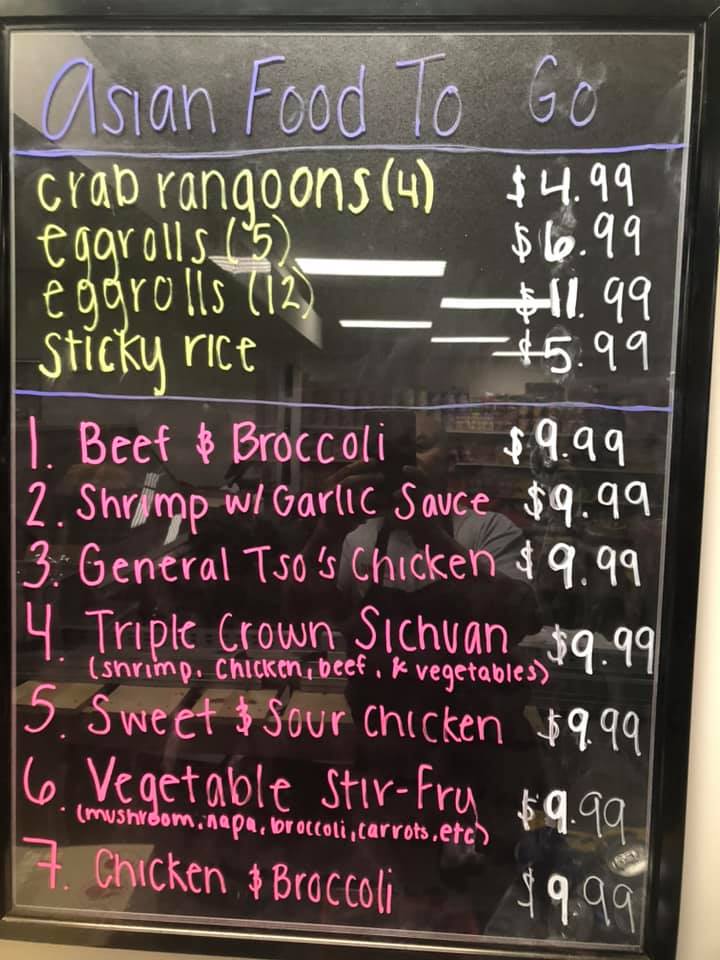 Asian Food To Go
crab rangoons (4) $4.99
eggrolls (5) $6.99
eggrolls (12) $11.99
sticky rice $5.99
1. Beef & Broccoli $9.99
2. Shrimp w/ Garlic Sauce $9.99
3. General Tso's Chicken $9.99
4. Triple Crown Sichuan $9.99
(shrimp, chicken, beef, & vegetables)
5. Sweet & Sour Chicken $9.99
6. Vegetable Stir-Fry $9.99
(mushroom, napa, broccoli, carrots, etc)
7. Chicken & Broccoli $9.99